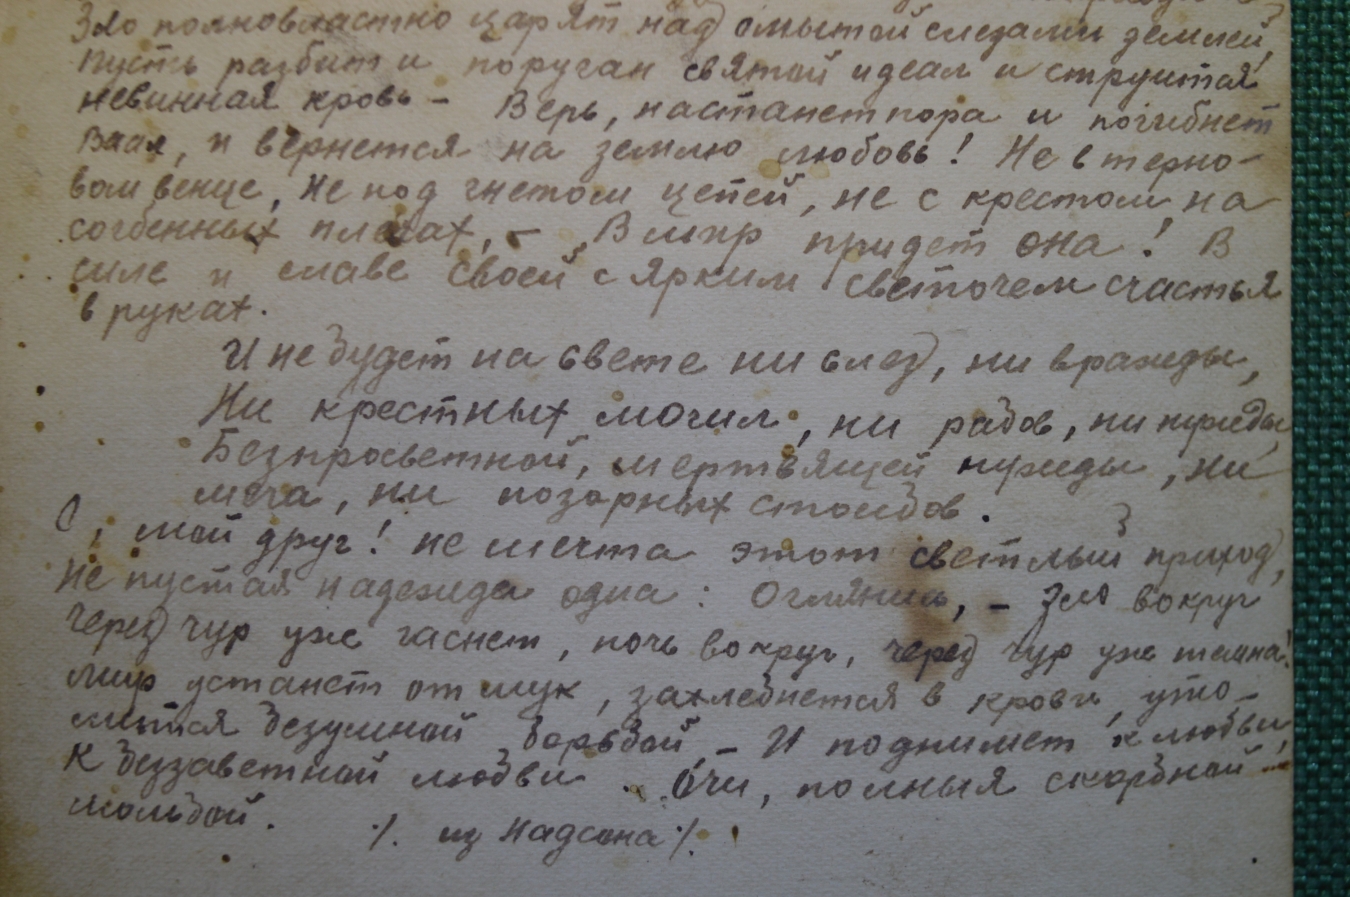 Зло полновластно царят над омытой слезами землей,
Пусть разбит и поруган святой идеал и струится
невинная кровь – Верь, настанет пора и погибнет
Ваал, и вернется на землю любовь! Не в терно-
вом венце, не под гнетом цепей, не с крестом на
согбенных плечах, – В мир придет она! В
силе и славе своей с ярким светочем счастья
в руках.
И не будет на свете ни слез, ни вражды,
Ни крестных могил, ни рабов, ни нужды,
Безпросветной, мертвящей нужды, ни
меча, ни позорных столбов.
О, мой друг! не мечта этот светлый приход,
Не пустая надежда одна: Оглянись, – Зло вокруг
Через чур уже гаснет, ночь вокруг, через чур уже темна!
Мир устанет от мук, захлебнется в крови, уто-
мится безумной борьбой, – И поднимет к любви
К беззаветной любви. Очи, полныя скорбной
мольбой. /. из Надсона /.